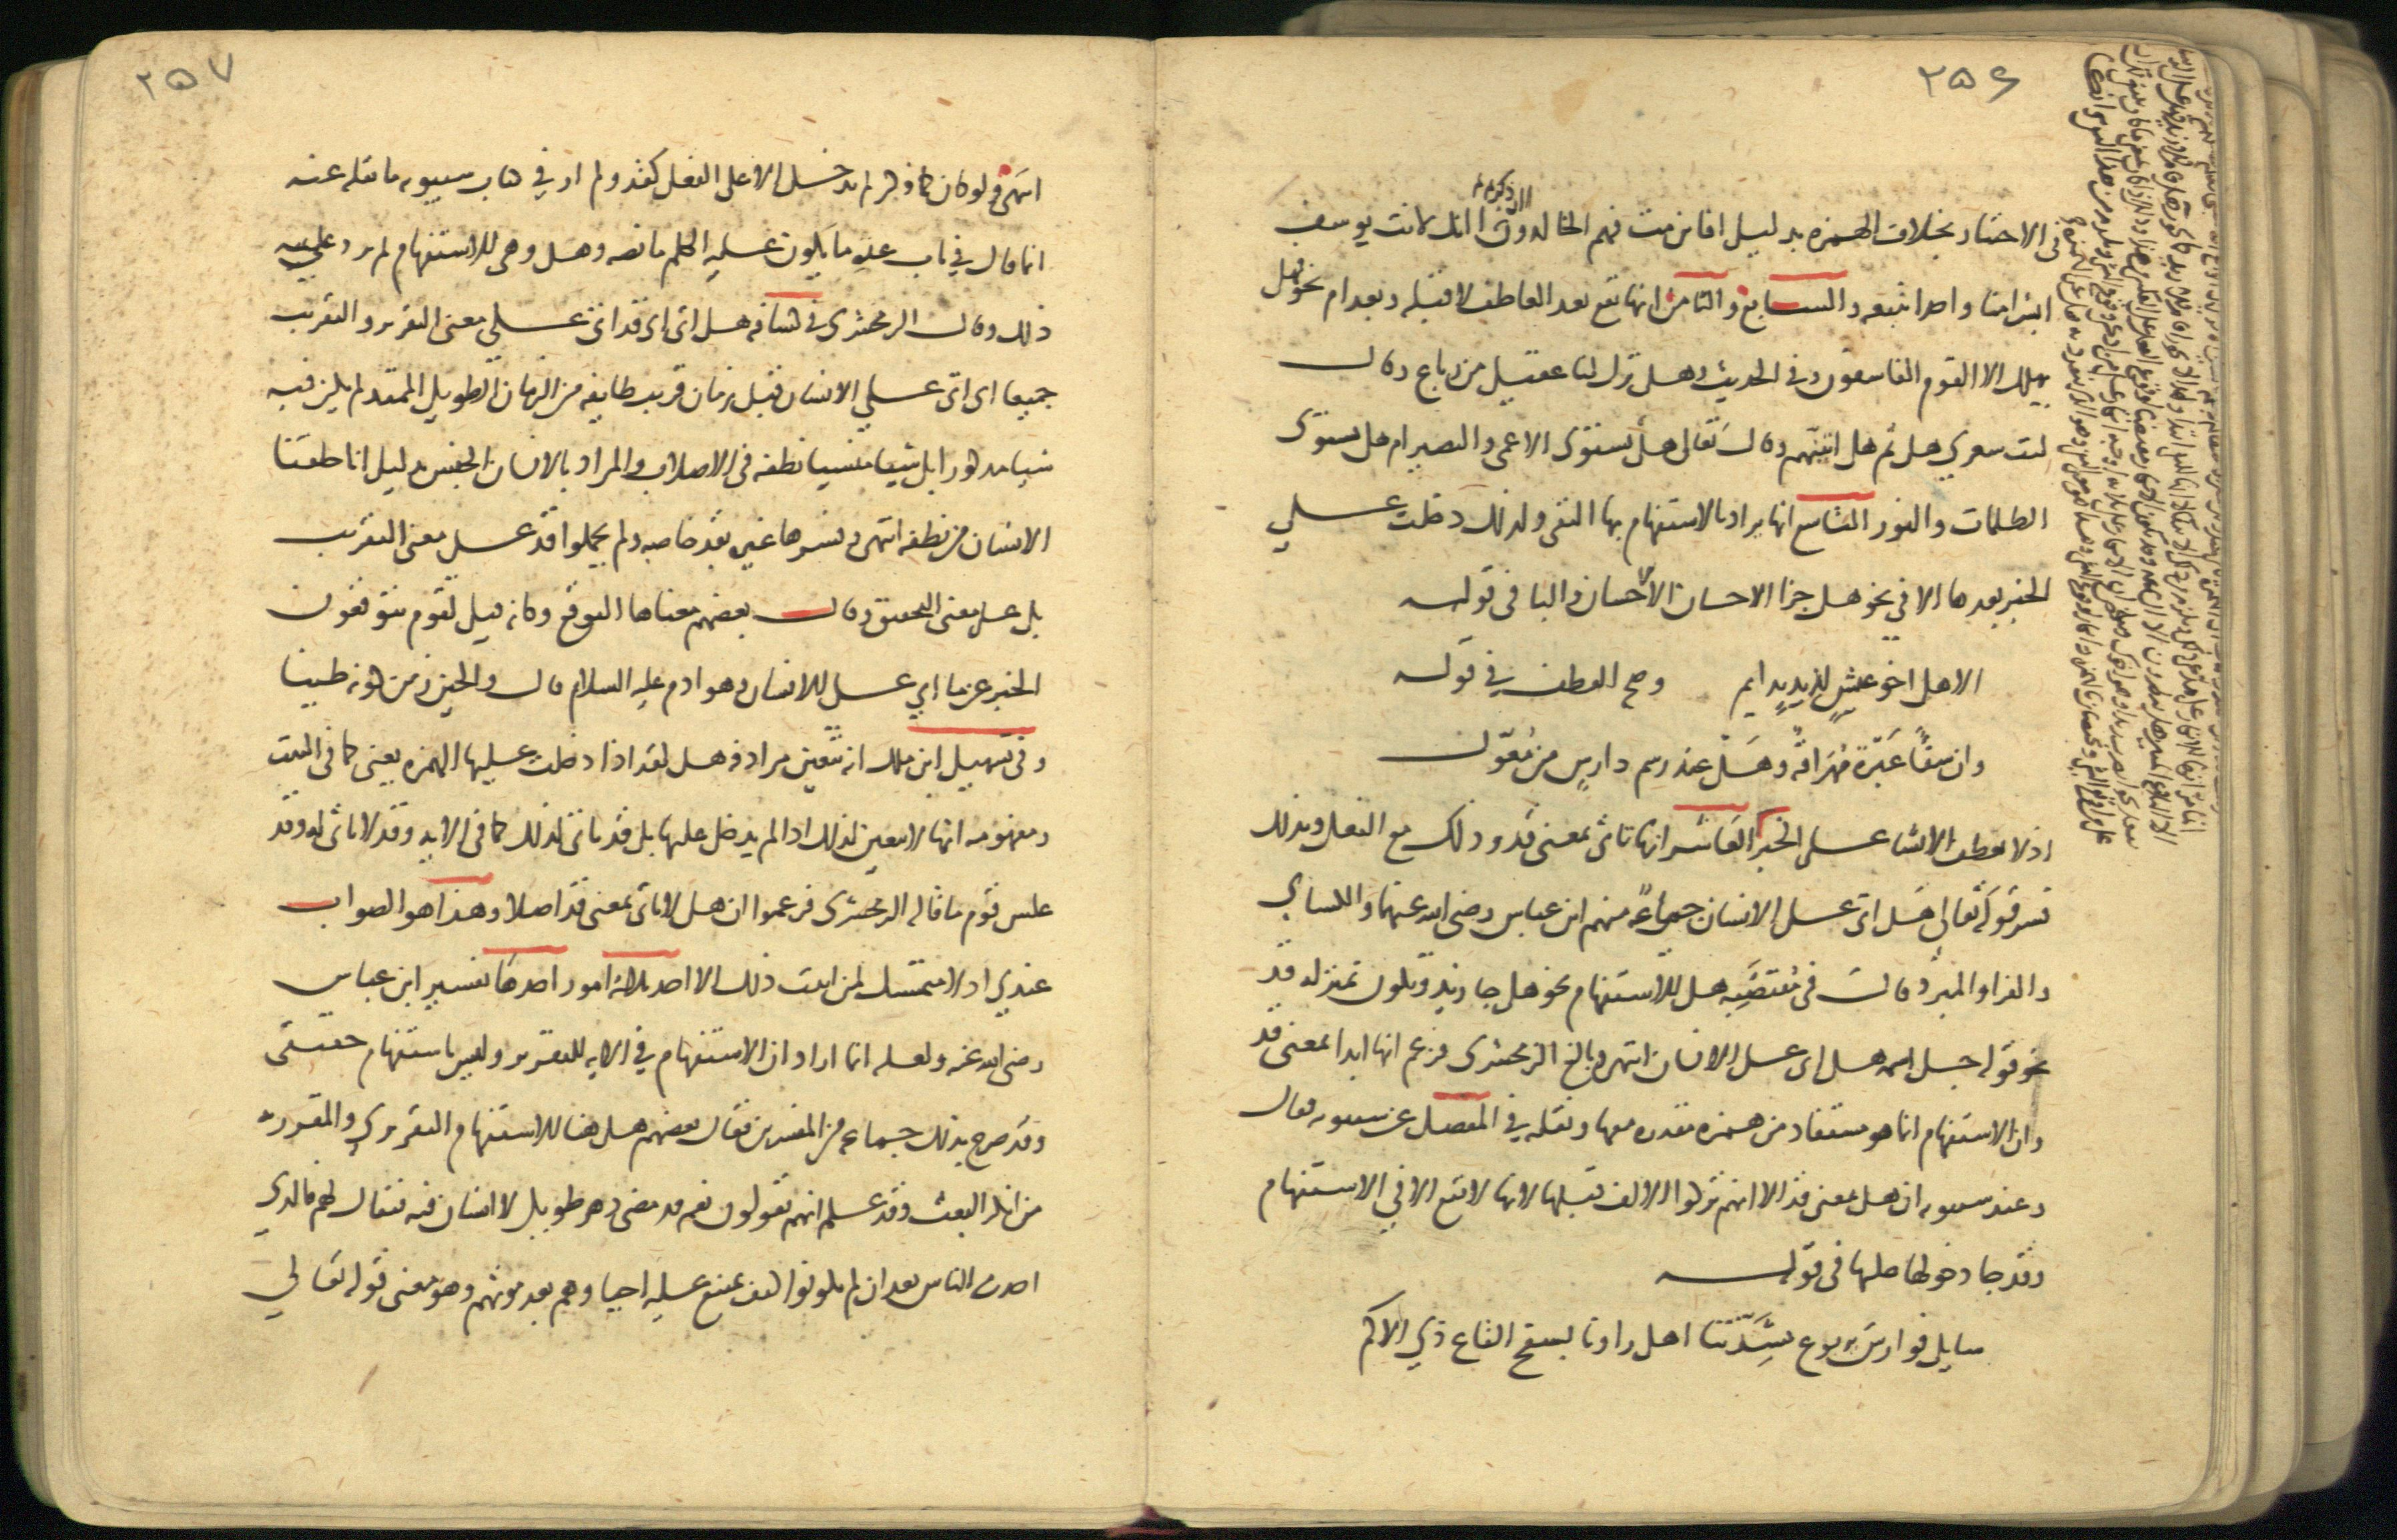 ٢٥٦
ائن ذكرتم
في الاختيار بخلاف الهمزة بدليل افاين مت فهم الخالدون ائنك لانت يوسف
ابشرا منا واحدا نتبعه والسابع والثامن انها تقع بعد العاطف لا قبله وبعد ام نحو فهل
يهلك الا القوم الفاسقون وفي الحديث وهل ترك لنا عقيل من رباع وقال
ليت شعري هل ثم هل اتينهم وقال تعالى هل يستوي الاعمى والبصير ام هل يستوي
الظلمات والنور التاسع انها يراد بالاستفهام بها النفي ولذلك دخلت على
الخبر بعدها الا في نحو هل جزا الاحسان الا الاحسان والبا في قوله
الا هل اخو عيش لذيذ بدايم وصح العطف في قوله
وان شفا عبرة مهراقة وهل عند رسم دارس من معول
اذ لا يعطف الانشا على الخبر العاشر انها تاتي بمعنى قد وذلك مع الفعل وبذلك
فسر قوله تعالى هل اتى على الانسان جماعة منهم ابن عباس رضي الله عنهما والكساي
والفرا والمبرد قال في مقتضبه هل للاستفهام نحو هل جا زيد وتكون بمنزلة قد
نحو قوله جل اسمه هل اتى على الانسان انتهى وبالغ الزمخشري فزعم انها ابدا بمعنى قد
وان الاستفهام انما هو مستفاد من همزة مقدرة معها ونقله في المفصل عن سيبويه فقال
وعند سيبويه ان هل بمعنى قد الا انهم تركوا الالف قبلها لانها لا تقع الا في الاستفهام
وقد جا دخولها عليها في قوله
سايل فوارس يربوع بشدتنا اهل راونا بسفح القاع ذي الاكم
٢٥٧
انتهى ولو كان كما ذكر لم تدخل الا على الفعل كقد ولم ار في كتاب سيبويه ما نقله عنه
انما قال في باب عدة ما يكون عليه الكلم ما نصه وهل وهي للاستفهام لم يزد على
ذلك وقال الزمخشري في كشافه هل اتى اي قد اتى على معنى التقرير والتقريب
جميعا اي اتى على الانسان قبل زمان قريب طايفة من الزمان الطويل الممتد لم يكن فيه
شيا مذكورا بل شيا منسيا نطفة في الاصلاب والمراد بالانسان الجنس بدليل انا خلقنا
الانسان من نطفة انتهى وفسرها غيره بقد خاصة ولم يحملوا قد على معنى التقريب
بل على معنى التحقيق وقال بعضهم معناها التوقع وكانه قيل لقوم يتوقعون
الخبر عن ما اتى على الانسان وهو ادم عليه السلام قال والحين زمن كونه طينا
وفي تسهيل ابن مالك انه تتعين مرادفة هل لقد اذا دخلت عليها الهمزة يعني كما في البيت
ومفهومه انها لا تتعين لذلك اذا لم يدخل عليها بل قد تاتي لذلك كما في الاية وقد لا تاتي له وقد
عكس قوم ما قاله الزمخشري فزعموا ان هل لا تاتي بمعنى قد اصلا وهذا هو الصواب
عندي اذ لا متمسك لمن اثبت ذلك الا احد ثلاثة امور احدها تفسير ابن عباس
رضي الله عنه ولعله انما اراد ان الاستفهام في الاية للتقرير وليس باستفهام حقيقي
وقد صرح بذلك جماعة من المفسرين فقال بعضهم هل هنا للاستفهام التقريري والمقرر به
من انكر البعث وقد علم انهم يقولون نعم قد مضى دهر طويل لا انسان فيه فيقال لهم فالذي
احدث الناس بعد ان لم يكونوا كيف يمتنع عليه احياوهم بعد موتهم وهو معنى قوله تعالى